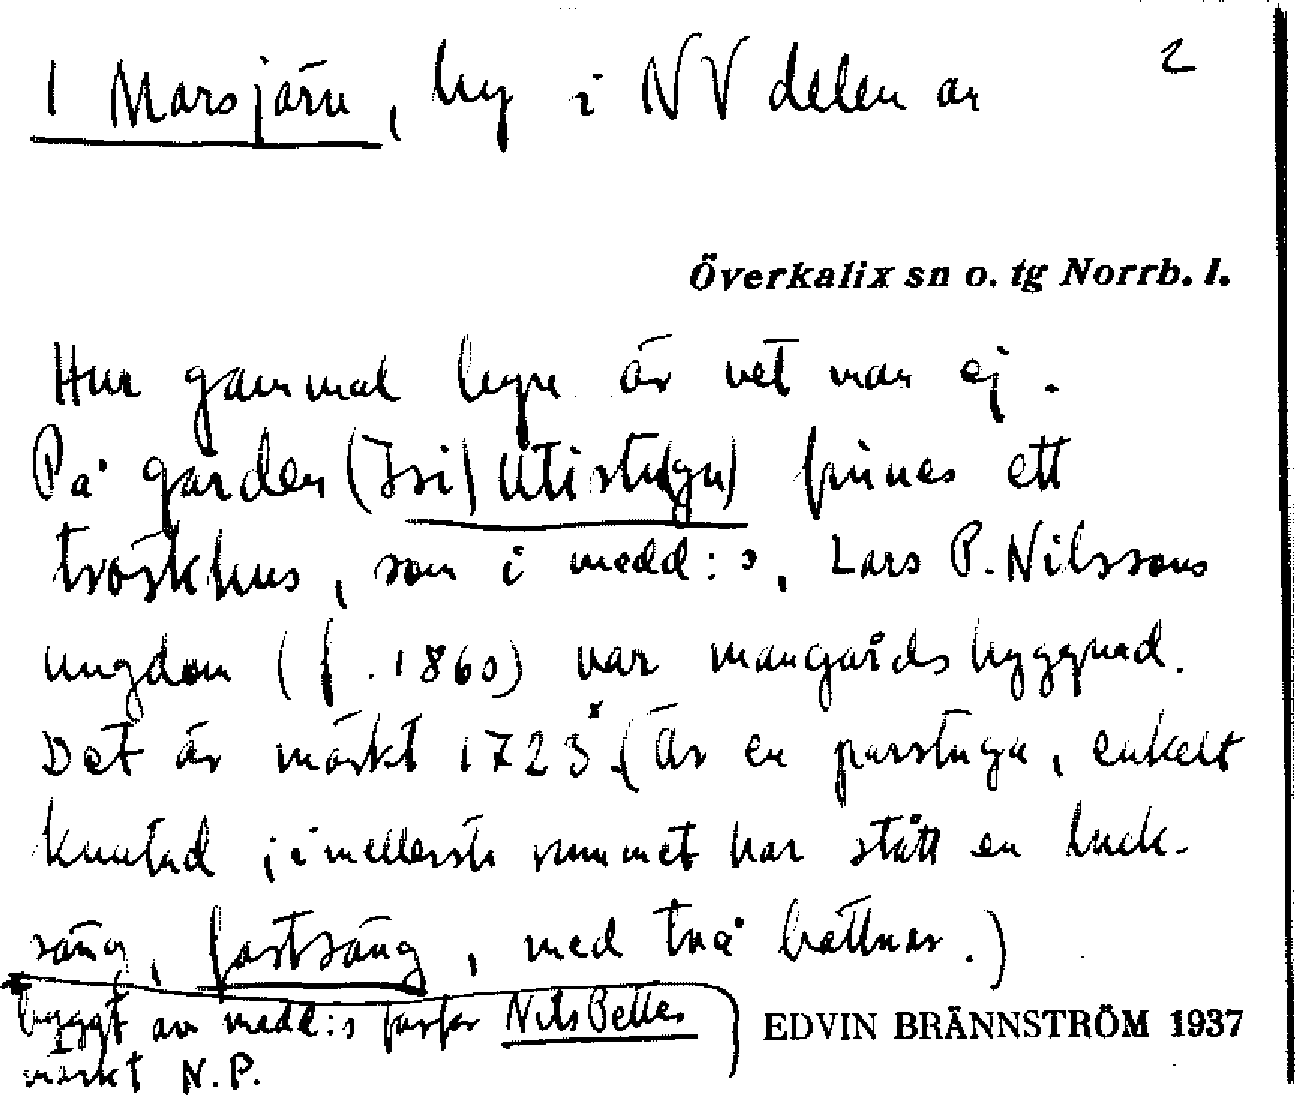 1 Marsjärv, by i NV delen av 2
Överkalix sn o. tg Norrb. l.
Hur gammal byn är vet man ej.
På gården (Isi) Utistu(gu) finnes ett
tröskhus, som i medd:s, Lars P. Nilssons
ungdom (f. 1860) var mangårdsbyggnad.
Det är märkt 1723x (Är en parstuga, enkelt
knutad; i mellersta rummet har stått en luck-
säng, fastsäng, med två bottnar.)
x byggt av medd:s farfar Nils Petter
märkt N.P.
EDVIN BRÄNNSTRÖM 1937